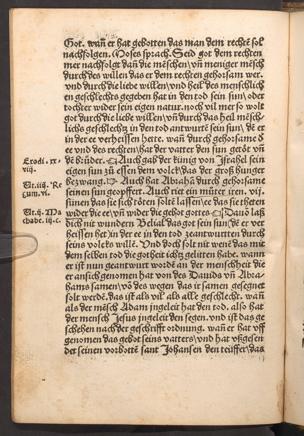 Got. wañ er hat gebotten das man dem rechtē sol
nachfolgen. Moses sprach. Seid got dem rechten
mer nachfolgt dañ die mēschen/vñ meniger mēsch
durch des willen das er dem rechten gehorsam wer.
vnd durch die liebe willen/vnd heil des menschlich
en geschlechts gegeben hat in den tod sein sun/oder
tochter wider sein eigen natur. noch vil mer so wolt
got durch die liebe willen/vñ durch das heil mēsch/
lichs geschlechtz in den tod antwurtē sein sun/ dē er
in der ee verheissen hette. wañ durch gehorsame d̄
ee vnd des rechten/hat der vatter den sun getöt vñ
Exodi. xx
viij.
de brüder. Auch gab der künig von Israhel sein
eigen sun zů essen dem volck/das der groß hunger
iiij. Re
gum. vi.
bezwang. Auch hat Abrahā durch gehorsame
seinen sun geopffert. Auch riet ein můter iren. vij.
ij. Ma
chabe. iij. c.
sünen das sie sich tötten soltē lassen/ee das sie thetten
wider die ee/vñ wider die gebot gottes. Dauō laß
dich nit wundern Belial das got sein sun/dē er ver
heissen het/in der ee in den tod geantwurtten durch
seines volcks willē. Vnd doch solt nit wenē das mit
dem selben tod die gotheit icht gelitten habe. wann
er ist nun geantwurt wordē an der menschheit die
er an sich genomen hat von des Dauids vñ Abra/
hams samen/vō des wegen das ir samen gesegnet
solt werdē. das ist als vil als alle geschlecht. wañ
als der mēsch Adam yngeleit hat den tod. also hat
der mensch Jesus yngeleit den segen. vnd ist das ge
schehen nach der geschrifft ordnung. wañ er hat vff
genomen das gebot seins vatters/vnd hat vßgesen
det seinen vorbottē sant Johansen den teüffer/das